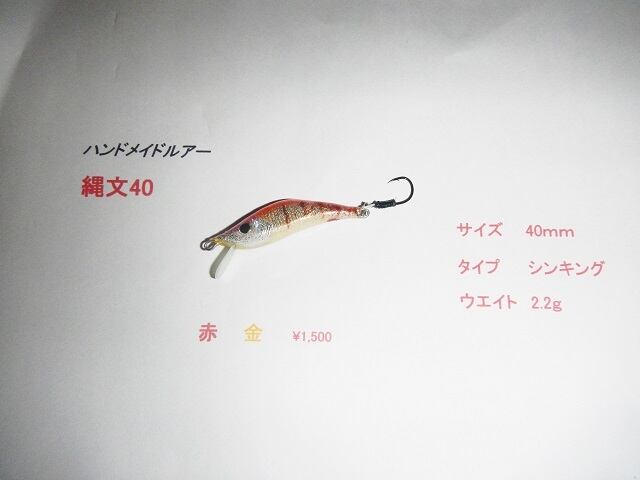 ハンドメイドルアー
縄文40
サイズ 40mm
タイプ シンキング
ウエイト 2.2g
赤 金 ¥1,500